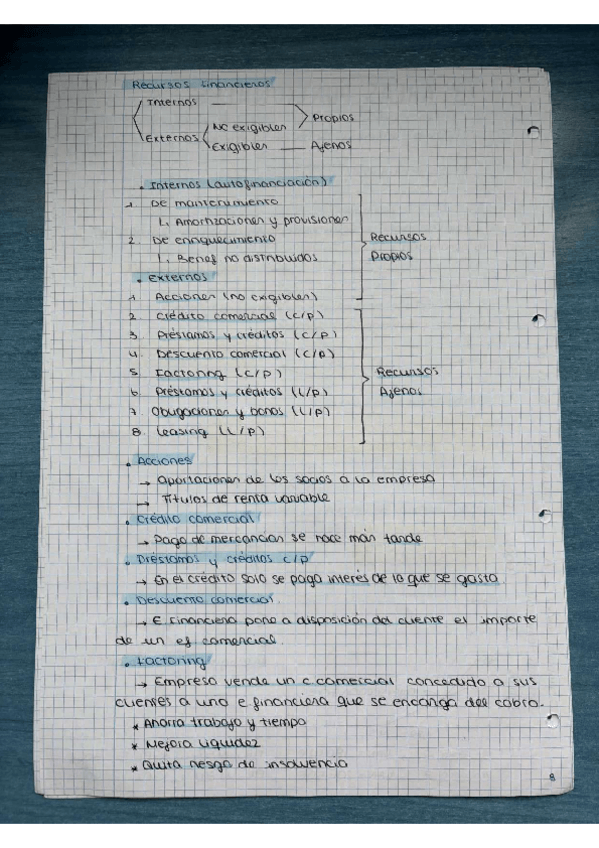 Recursos financieros
Internos
Propios
Externos
No exigibles
Exigibles
Ajenos
• Internos (autofinanciación)
1. De mantenimiento
↳ Amortizaciones y provisiones
2. De enriquecimiento
↳ Benef no distribuidos
Recursos
Propios
• Externos
1. Acciones (no exigibles)
2. Crédito comercial (c/p)
3. Préstamos y créditos (c/p)
4. Descuento comercial (c/p)
5. Factoring (c/p)
6. Préstamos y créditos (L/p)
7. Obligaciones y bonos (L/p)
8. Leasing (L/p)
Recursos
Ajenos
• Acciones
→ Aportaciones de los socios a la empresa
→ Títulos de renta variable
• Crédito comercial
→ Pago de mercancías se hace más tarde
• Préstamos y créditos c/p
→ En el crédito solo se paga interés de lo que se gasta
• Descuento comercial.
→ E financiera pone a disposición del cliente el importe
de un ef comercial.
• Factoring
→ Empresa vende un c.comercial concedido a sus
clientes a una e financiera que se encarga del cobro.
* Ahorra trabajo y tiempo
* Mejora liquidez
* Quita riesgo de insolvencia
8